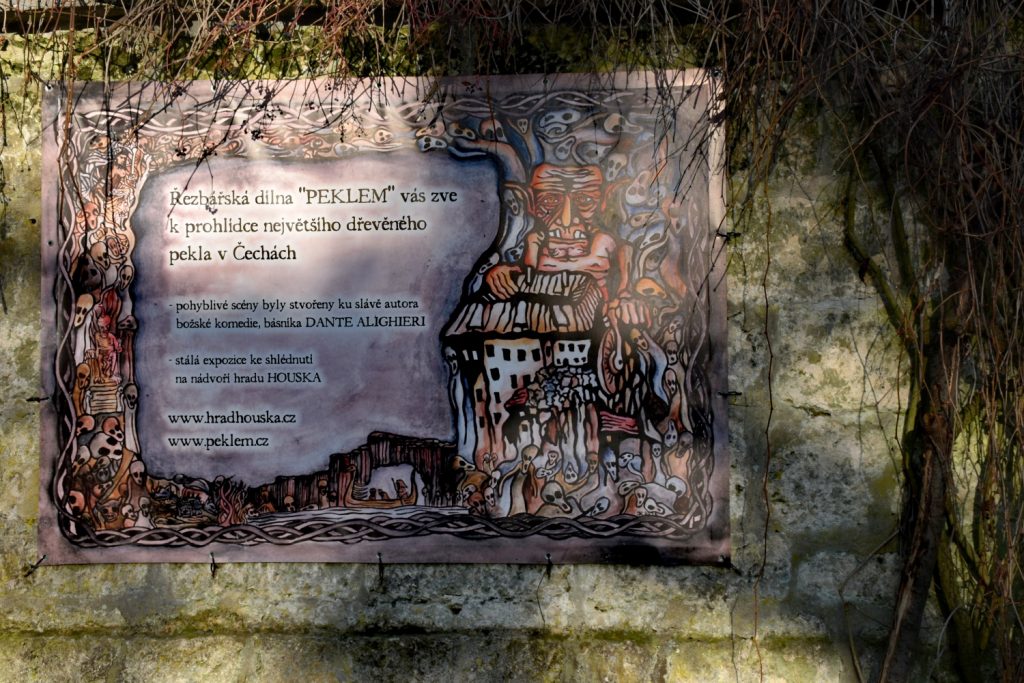 Řezbářská dílna "PEKLEM" vás zve
k prohlídce největšího dřevěného
pekla v Čechách
- pohyblivé scény byly stvořeny ku slávě autora
božské komedie, básníka DANTE ALIGHIERI
- stálá expozice ke shlédnutí
na nádvoří hradu HOUSKA
www.hradhouska.cz
www.peklem.cz